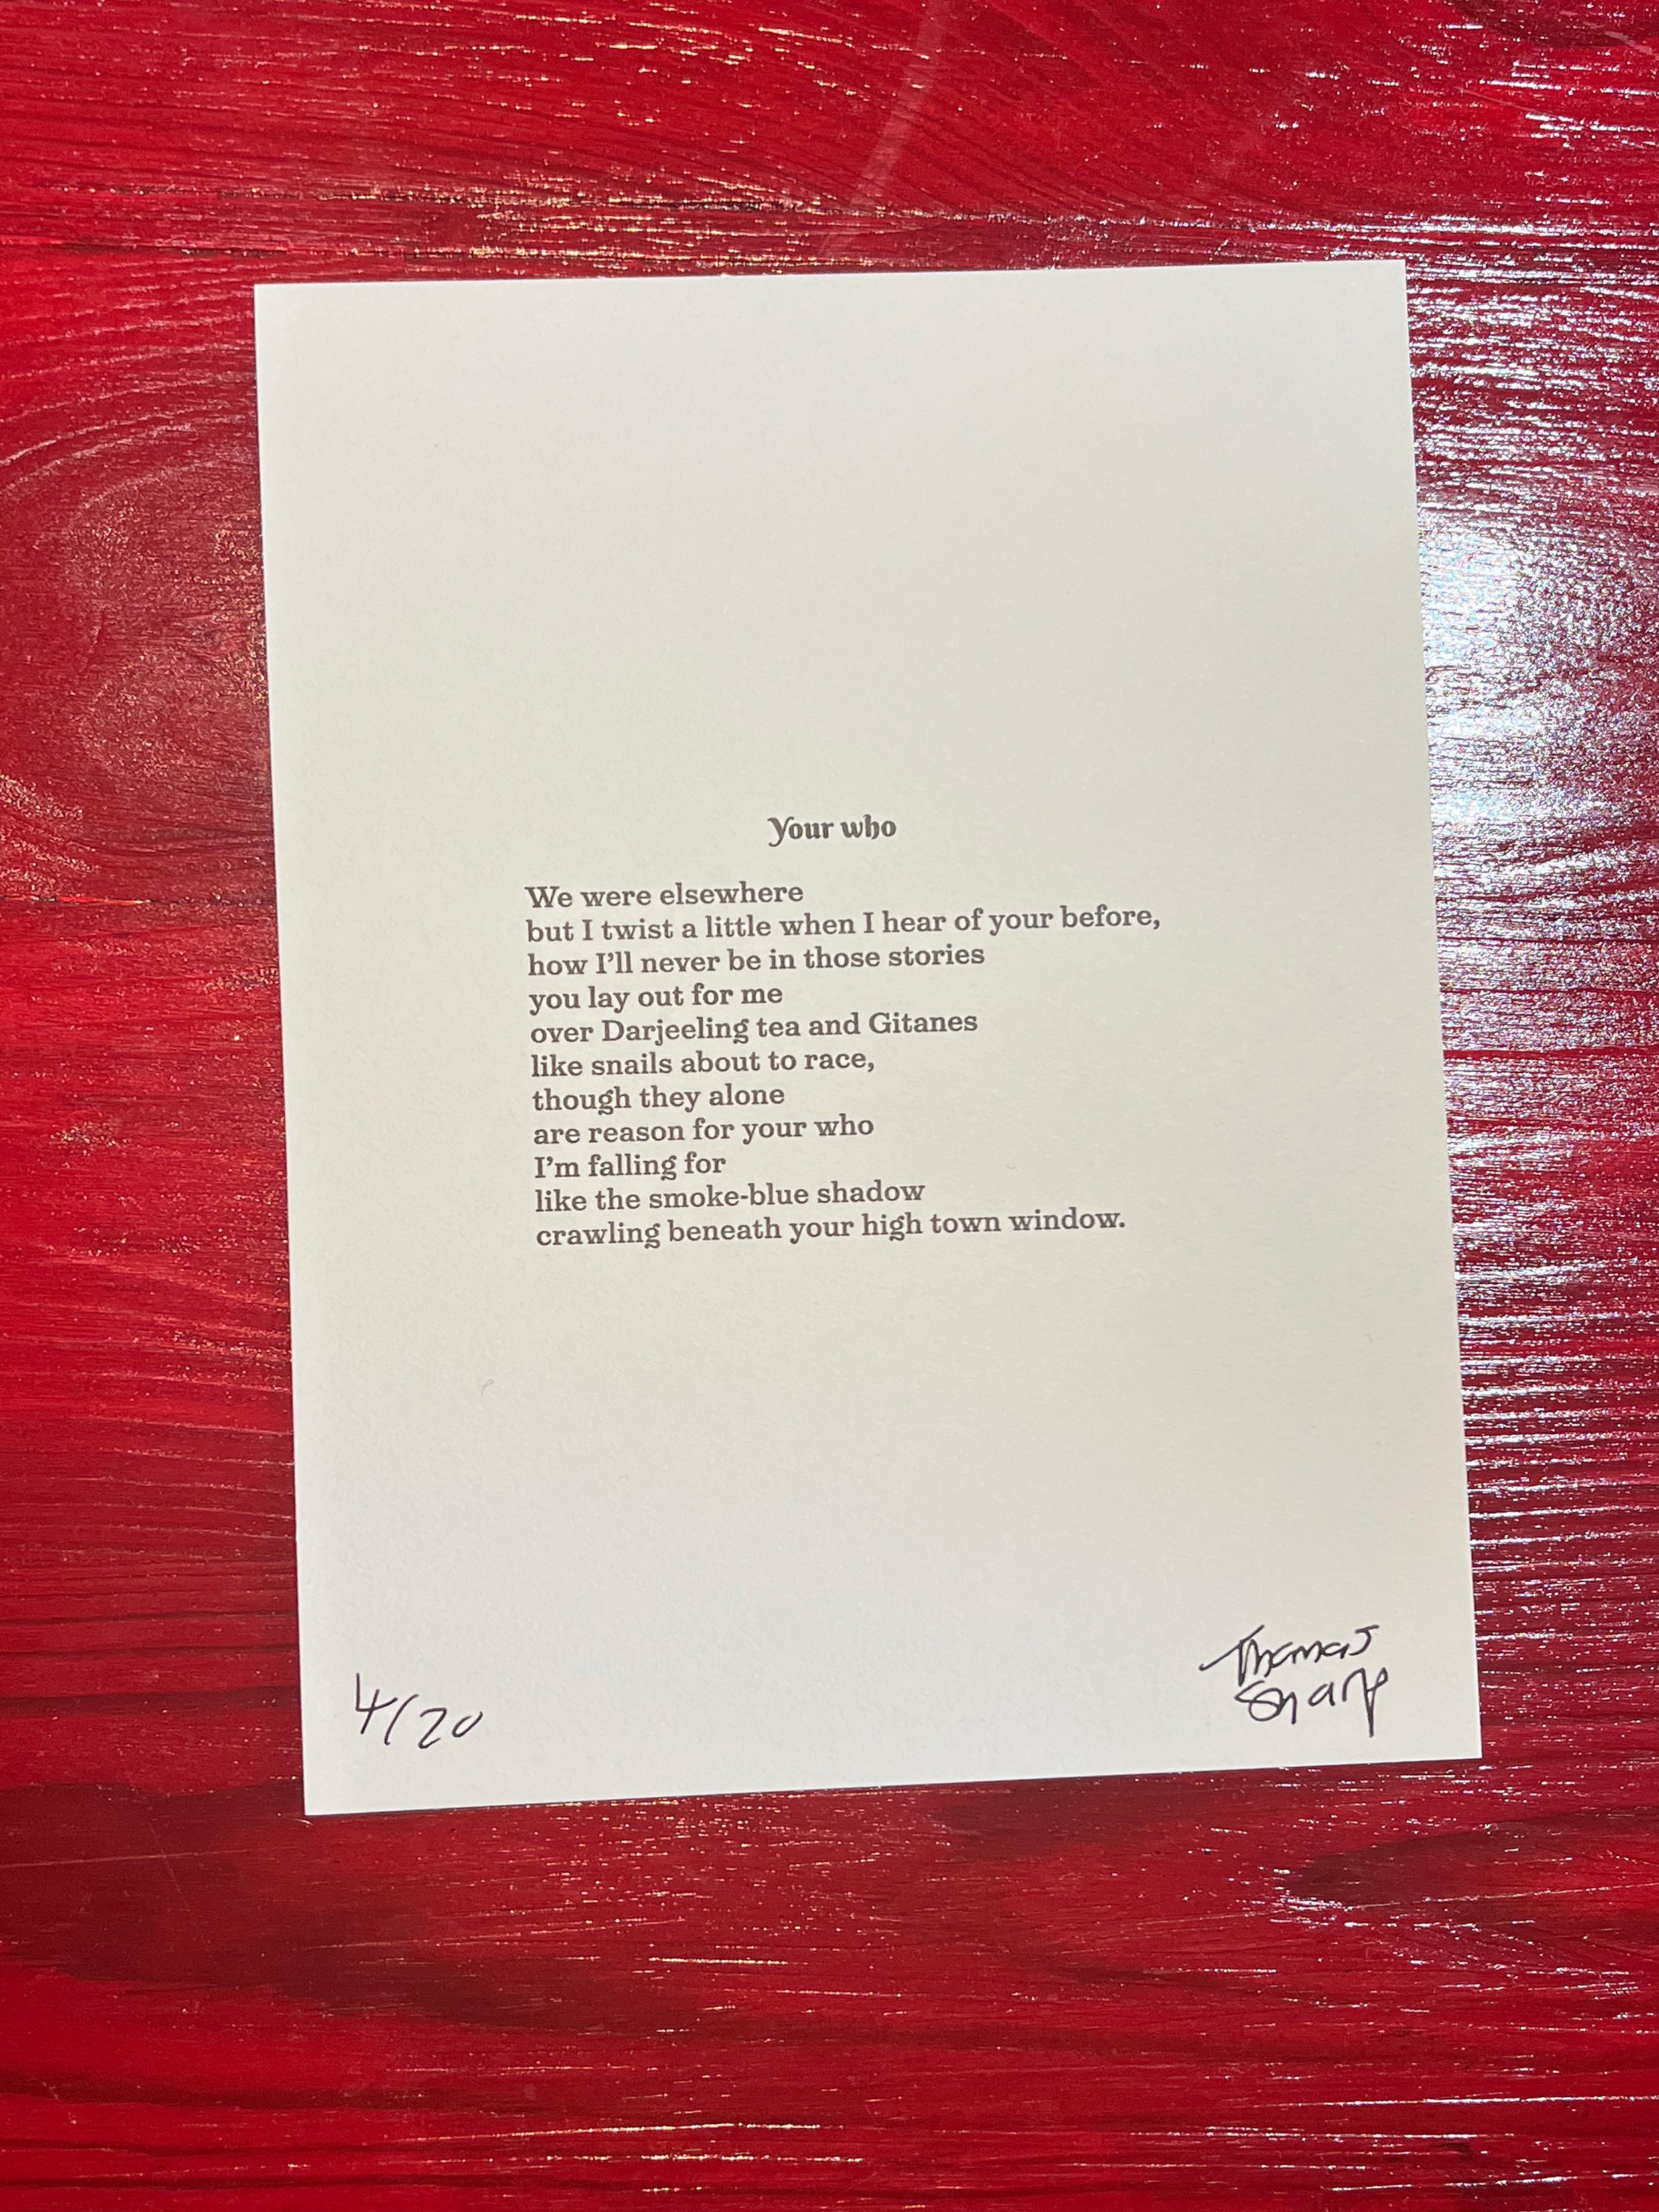 Your who
We were elsewhere
but I twist a little when I hear of your before,
how I'll never be in those stories
you lay out for me
over Darjeeling tea and Gitanes
like snails about to race,
though they alone
are reason for your who
I'm falling for
like the smoke-blue shadow
crawling beneath your high town window.
4/20
Thomas
Sharp